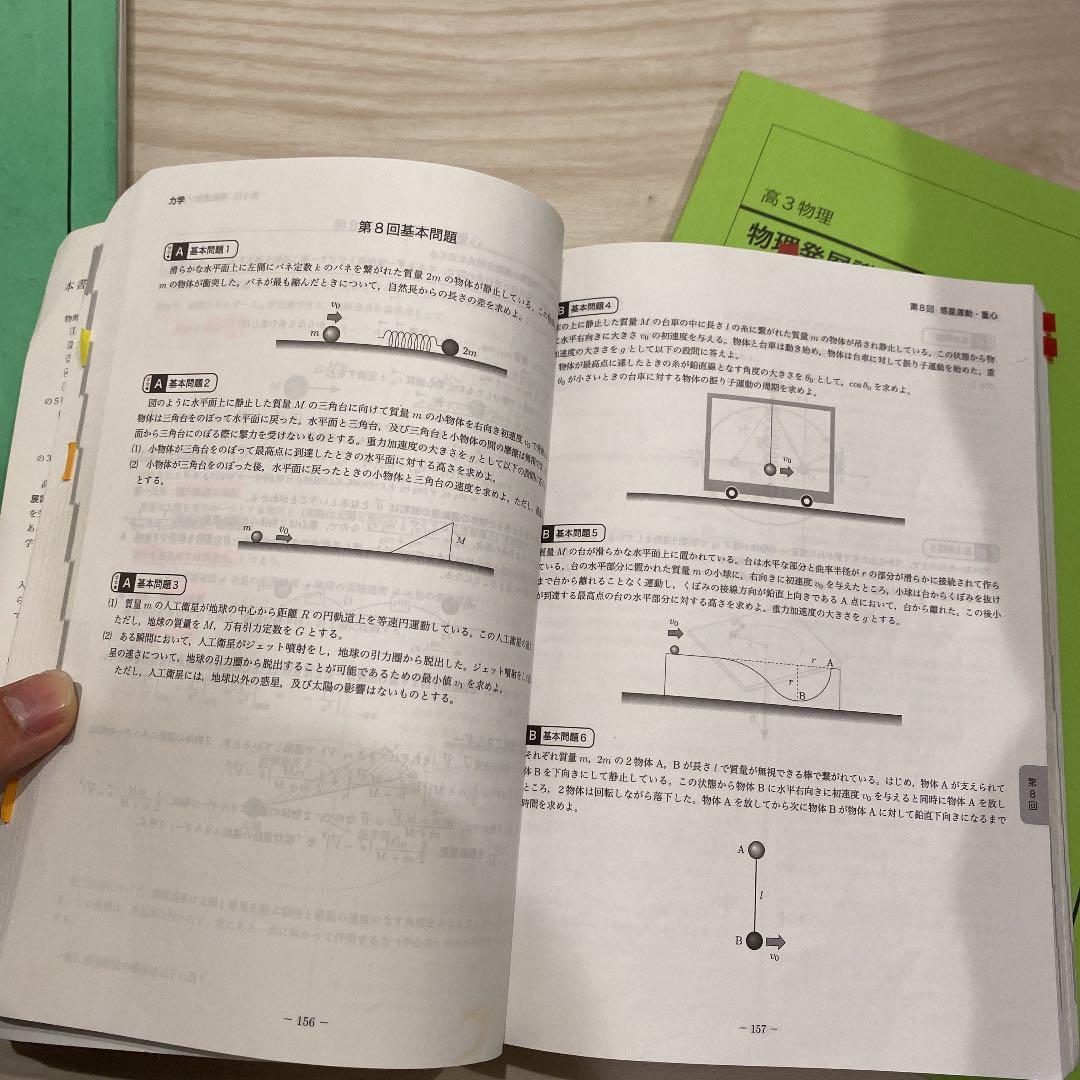 高3物理
物理発展
本書
物理
の5
の3
展
を
あ
学
入
力学
第8回基本問題
A 基本問題1
滑らかな水平面上に左側にバネ定数 k のバネを繋がれた質量 2m の物体が静止している。この
m の物体が衝突した。バネが最も縮んだときについて，自然長からの長さの差を求めよ。
v₀
m
2m
A 基本問題2
図のように水平面上に静止した質量 M の三角台に向けて質量 m の小物体を右向き初速度 v₀ で
物体は三角台をのぼって水平面に戻った。水平面と三角台，及び三角台と小物体の間の摩擦は無視
面から三角台にのぼる際に撃力を受けないものとする。重力加速度の大きさを g として以下の設問に
(1) 小物体が三角台をのぼって最高点に到達したときの水平面に対する高さを求めよ。
(2) 小物体が三角台をのぼった後，水平面に戻ったときの小物体と三角台の速度を求めよ。ただし，
とする。
m
v₀
M
A 基本問題3
(1) 質量 m の人工衛星が地球の中心から距離 R の円軌道上を等速円運動している。この人工衛星の
ただし，地球の質量を M，万有引力定数を G とする。
(2) ある瞬間において，人工衛星がジェット噴射をし，地球の引力圏から脱出した。ジェット噴射をした
星の速さについて，地球の引力圏から脱出することが可能であるための最小値 v₁ を求めよ。
ただし，人工衛星には，地球以外の惑星，及び太陽の影響はないものとする。
− 156 −
第8回 惑星運動・重心
B 基本問題4
の上に静止した質量 M の台車の中に長さ l の糸に繋がれた質量 m の物体が吊され静止している。この状態から物
に水平右向きに大きさ v₀ の初速度を与える。物体と台車は動き始め，物体は台車に対して振り子運動を始めた。重
加速度の大きさを g として以下の設問に答えよ。
物体が最高点に達したときの糸が鉛直線となす角度の大きさを θ₀ として，cos θ₀ を求めよ。
θ₀ が小さいときの台車に対する物体の振り子運動の周期を求めよ。
v₀
B 基本問題5
質量 M の台が滑らかな水平面上に置かれている。台は水平な部分と曲率半径が r の部分が滑らかに接続されて作ら
ている。台の水平部分に置かれた質量 m の小球に，右向きに初速度 v₀ を与えたところ，小球は台からくぼみを抜け
まで台から離れることなく運動し，くぼみの接線方向が鉛直上向きである A 点において，台から離れた。この後小
が到達する最高点の台の水平部分に対する高さを求めよ。重力加速度の大きさを g とする。
v₀
r
A
r
B
B 基本問題6
それぞれ質量 m，2m の2物体 A，B が長さ l で質量が無視できる棒で繋がれている。はじめ，物体 A が支えられて
体 B を下向きにして静止している。この状態から物体 B に水平右向きに初速度 v₀ を与えると同時に物体 A を放し
ところ，2物体は回転しながら落下した。物体 A を放してから次に物体 B が物体 A に対して鉛直下向きになるまで
時間を求めよ。
第8回
A
l
B
v₀
− 157 −